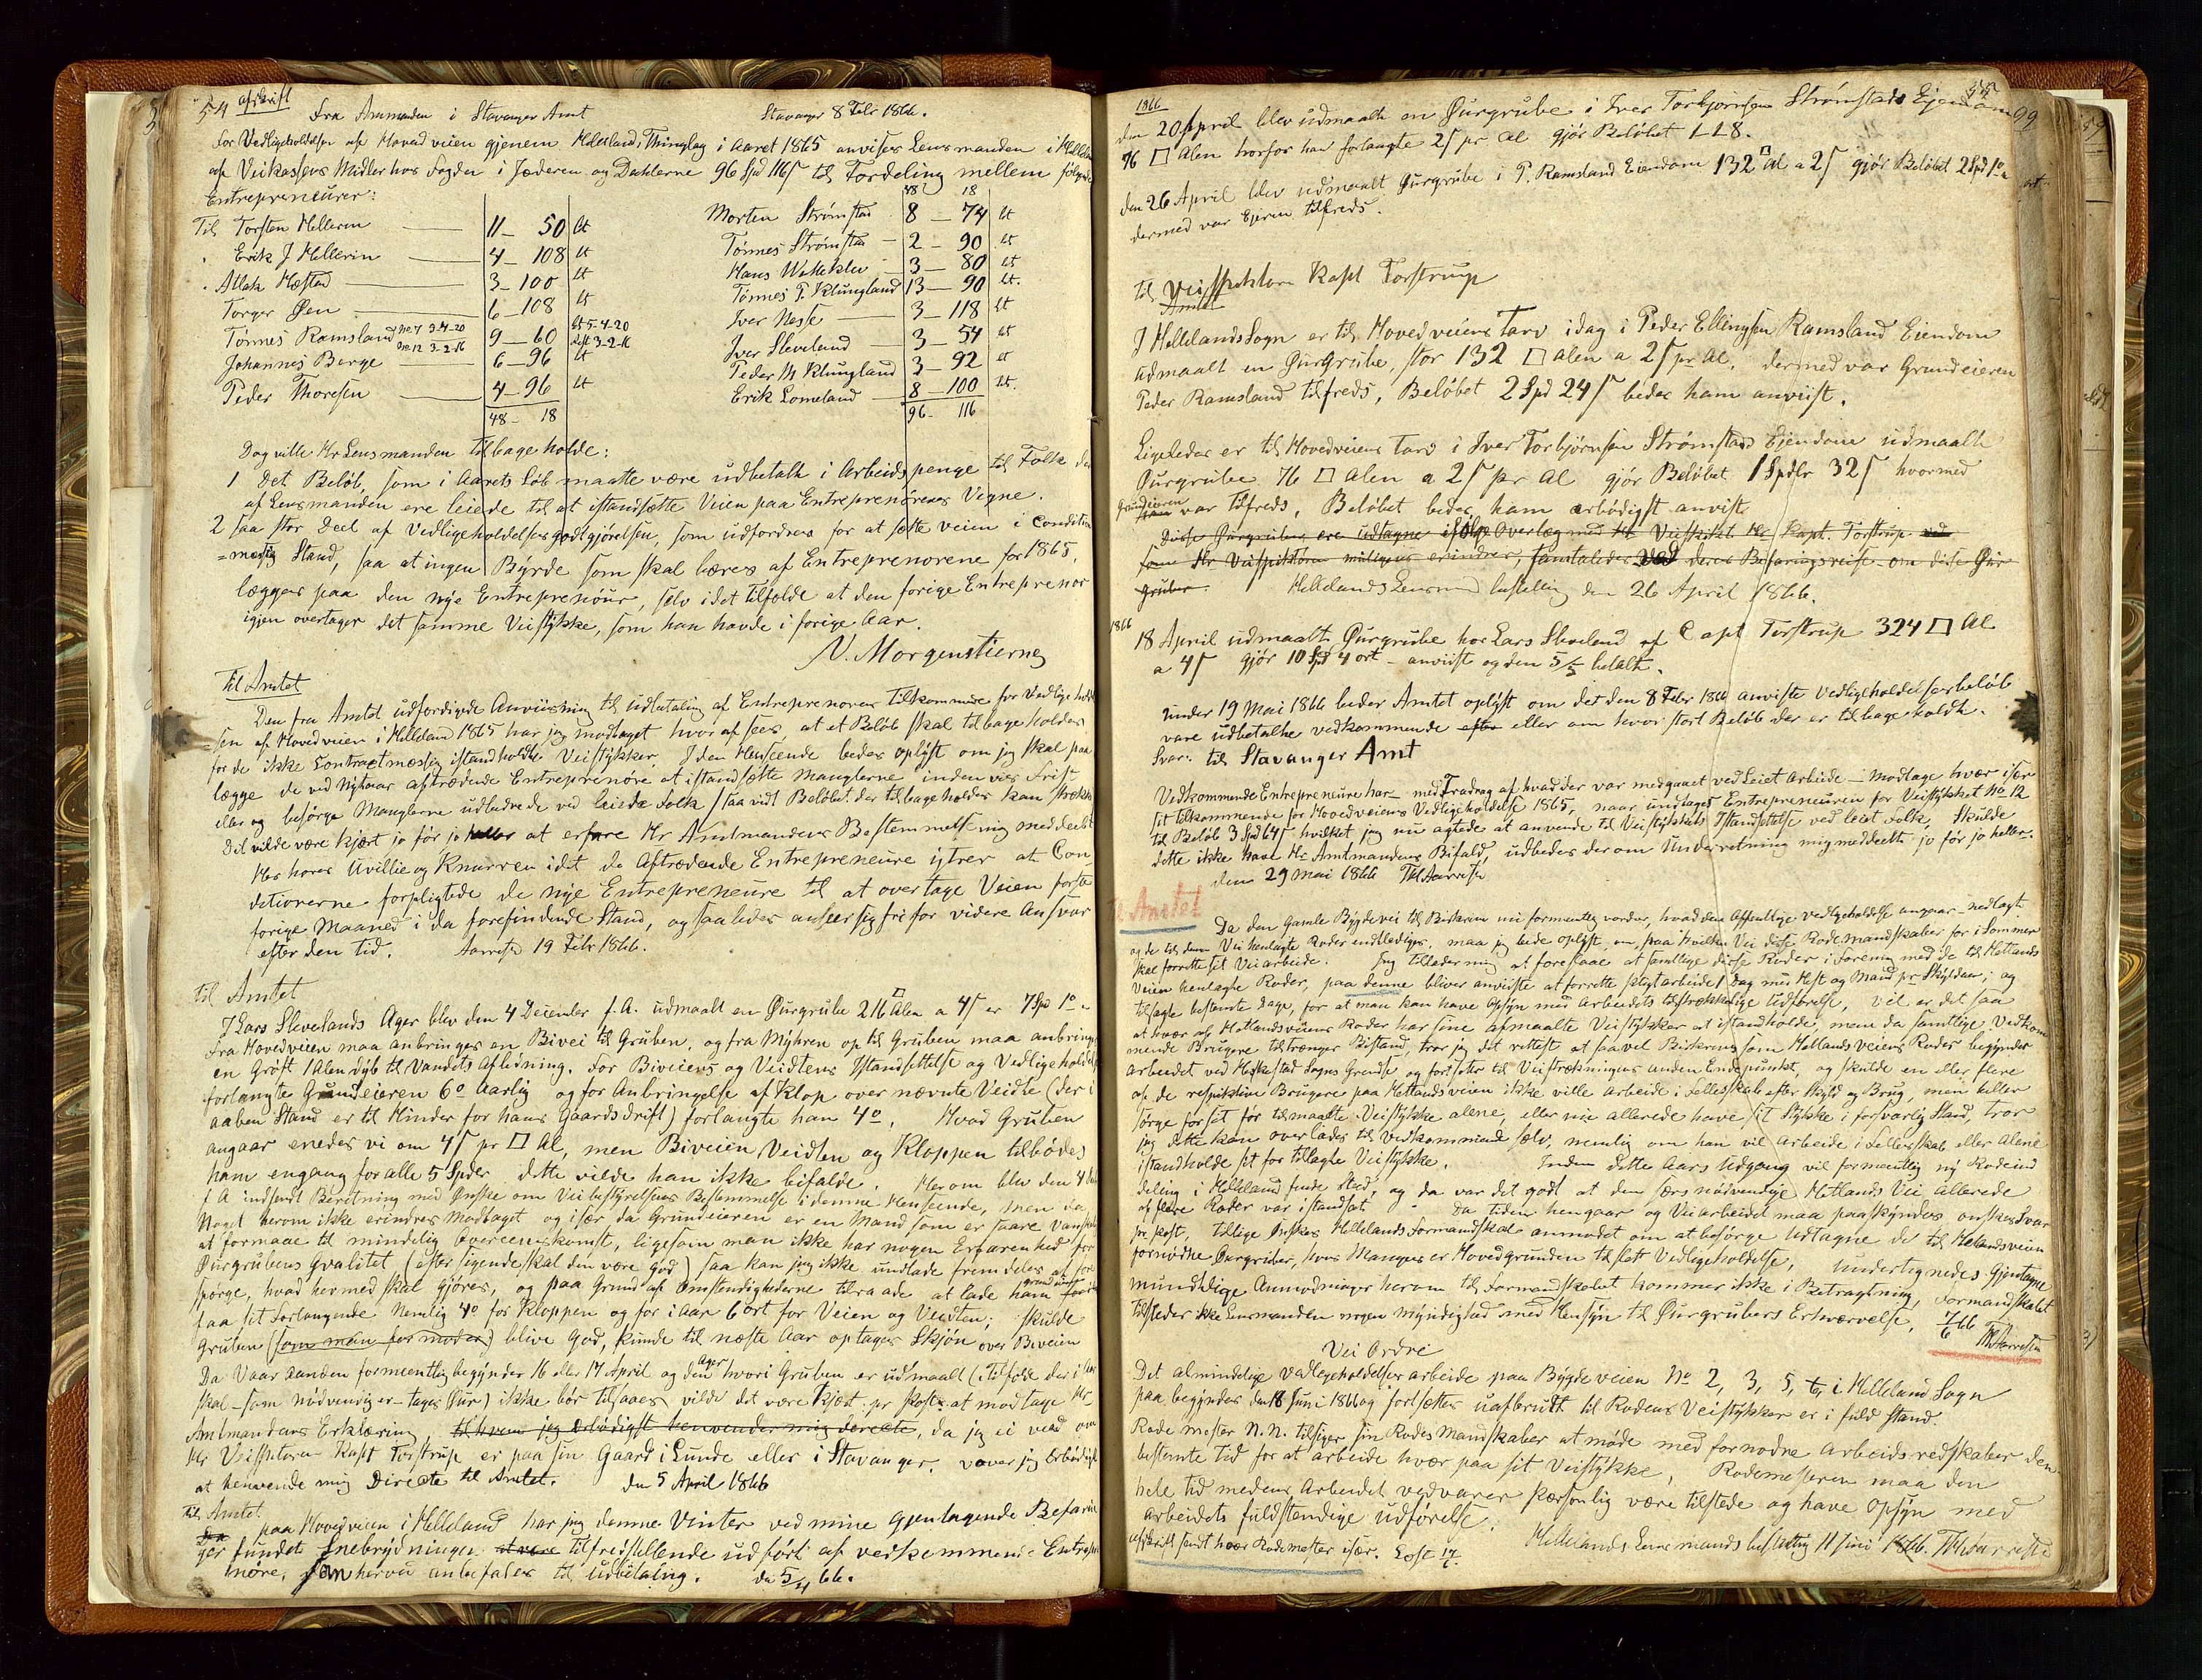 54 afskrift
Fra Amtmanden i Stavanger Amt Stavanger 8 Febr 1866.
For Vedligeholdelse af Hovedveien gjenem Helleland Thinglag i Aaret 1865 anvises Lensmanden i
af Veikassens Midler hos Fogden i Jæderen og Dalerne 96 Spd 116 ſ til Fordeling mellem følgende
Entrepreneurer:
Til Torsten Hellern 11 – 50 bt
Erik J Hellerin 4 – 108 bt
Atlak Hæstad 3 – 100 bt
Torger Øen 6 – 108 bt
Tønnes Ramsland No 7 3-4-20 No 12 3-2-16 9 – 60 bt 5-4-20 3-2-16
Johannes Berge 6 – 96 bt
Peder Thoresen 4 – 96 bt
48 – 18
48 18
Morten Strømstad 8 – 74 bt
Tønnes Strømstad 2 – 90 bt
Hans 3 – 80 bt
Tønnes P. Klungland 13 – 90 bt.
Iver Nesse 3 – 118 bt
Iver Sleveland 3 – 54 bt
Peder M Klungland 3 – 92 bt
Erik Lomeland 8 – 100 bt.
96 – 116
Dog ville Hr Lensmanden tilbageholde:
1 Det Beløb, som i Aarets Løb maatte være udbetalt i Arbeidspenge til Folk der
af Lensmanden ere leiede til at istandsætte Veien paa Entreprenørenes Vegne.
2 saa stor Deel af Vedligeholdelsesgodtgjørelsen, som udfordres for at sætte veien i Condition
=mæsig Stand, saa at ingen Byrde som skal bæres af Entreprenorene for 1865,
lægges paa den nye Entreprenour, selv i det Tilfælde at den forige Entreprenor
igjen overtager det samme Veistykke, som han havde i forige Aar.
N. Morgenstierne
Til Amtet
Den fra Amtet udfærdigede Anviisning til udbetaling af Entreprenorens Tilkommende for Vedligehol
sen af Hovedveien i Helleland 1865 har jeg modtaget hvoraf sees, at et Beløb skal tilbageholdes
for de ikke Contractmæsig istandholdte Veistykker. I den Henseende bedes oplyst om jeg skal paa
lægge de ved Nytaar aftrædende Entreprenøre at istandsætte Manglerne inden vis Frist
eller og besørge Manglerne udbedrede ved leiede Folk (saavidt Beløbet der tilbageholdes kan strække
Det vilde være kjært jo før jo heller at erfare Hr Amtmandens Bestemmelse mig meddeelt
Her høres Uvillie og Knurren idet de Aftrædende Entrepreneure ytrer at Con-
detionerne forpligtede de nye Entrepreneure til at overtage Veien første
forige Maaned i da forefindende Stand, og saaledes anseer sig fri for videre Ansvar
efter den tid. Aarrestad 19 Febr 1866.
Til Amtet
I Lars Slevelands Ager blev den 4 December f.A. udmaalt en Øurgrube 216 □ Alen a 4 ſ er 7 Spd 1 o
Fra Hovedveien maa anbringes en Bivei til Gruben, og fra Myhren op til Gruben maa anbringes
en Grøft 1 Alen dyb til Vandets Afledning. For Biveiens og Veidtens Istandsettelse og Vedligeholdel
forlangte Grundeieren 6 o Aarlig og for Anbringelse af Klop over nævnte Veidte (der i
aaben Stand er til Hinder for hans Gaardsdrift) forlangte han 4 o. Hvad Gruben
angaar enedes vi om 4 ſ pr □ Al, men Biveien Veidten og Kloppen tilbødes
ham engang for alle 5 Spdr dette vilde han ikke bifalde. Herom blev den 4
f A indsendt Beretning med Ønske om Veibestyrelsens Bestemmelse i denne Henseende, men da
Noget herom ikke erindres Modtaget og især da Grundeieren er en Mand som er svare
at formaae til mindelig Overeenskomst, ligesom man ikke har nogen Erfarenhed for
Øurgrubens Qvalitet (efter sigende skal den være god) saa kan jeg ikke undlade fremdeles at for
spørge, hvad hermed skal gjøres, og paa Grund af Omstændighederne tilraade at lade ham
faa sit Forlangende Nemlig 4 o for Kloppen og for i aar 6 ort for Veien og Veidten; skulde
Gruben (som man formoder) blive god, kunde til næste Aar optages Skjøn over Biveien
Da Vaaraanden formeentlig begynder 16 eller 17 April og den Ager hvori Gruben er udmaalt (i Tilfælde der i Aar
skal – som nødvendig er – tages Øur) ikke bør tilsaaes, vilde det være kjæt pr Post at modtage Hr
Amtmandens Erklæring, til hvem jeg ærbødigst henvender mig directe, da jeg ei ved om
Hr Veispktøren Kapt Torstrup er paa sin Gaard i Lunde eller i Stavanger, vover jeg Ærbødigst
at henvende mig Directe til Amtet. den 5 April 1866
Til Amtet
Da paa Hovedveien i Helleland har jeg denne Vinter ved mine gjentagende Befarin
ger fundet Snebrydningen at være tilfredstillende udført af vedkommende Entrepre
nøre, som herved anbefales til udbetaling. den 5/4 66.
55
99
1866
den 20 April blev udmaalt en Øurgrube i Iver Torbjørnsen Strømstads Ejendom
76 □ Alen hvorfor han forlangte 2 ſ pr Al gjør Beløbet 1-1-8.
den 26 April blev udmaalt Øurgrube i P. Ramsland Eiendom 132 □ Al a 2 ſ gjør Beløbet 2 Spd 1 o
dermed var Ejeren tilfreds.
til Veispektøren Kapt Torstrup
Amtet
I Hellelands Sogn er til Hovedveiens Tarv idag i Peder Ellingsen Ramsland Eiendom
udmaalt en Øurgrube, stor 132 □ Alen a 2 ſ pr Al. dermed var Grundeieren
Peder Ramsland tilfreds, Beløbet 2 Spd 24 ſ bedes ham anviist.
Ligeledes er til Hovedveiens Tarv i Iver Torbjørnsen Strømstads Ejendom udmaalt
Øurgrube 76 □ Alen a 2 ſ pr Al gjør Beløbet 1 Spdlr 32 ſ hvormed
Grundeieren var tilfreds, Beløbet bedes ham ærbødigst anvist
Disse Øurgruber ere udtagne ifølge Overlæg med Veispekt. Hr Kapt. Torstrup
som Hr Veispektøren erindrer, samtaledes ved deres Befaringsreise om disse Øur
gruber. Hellelands Lensmd bestilling den 26 April 1866.
1866
18 April udmaalt Øurgrube hos Lars Sleveland af Capt Torstrup 324 □ Al
a 4 ſ gjør 10 Spd 4 ort – anviist og den 5/5 betalt.
under 19 Mai 1866 beder Amtet oplyst om det den 8 Febr 1866 anviste Vedligeholdelsesbeløb
vare udbetalte vedkommende efter eller om hvor stort Beløb der er tilbageholdt.
Svar: til Stavanger Amt
Vedkommende Entrepreneure har – med Fradrag af hvad der var medgaaet ved Leiet Arbeide – Modtage hver især
sit tilkommende for Hovedveiens Vedligeholdelse 1865, naar undtages Entrepreneuren for Veistykket No 12
til Beløb 3 Spd 64 ſ hvilket jeg nu agtede at anvende til Veistykkets Istandsettelse ved leiet Folk, Skulde
dette ikke have Hr Amtmandens Bifald, udbedes derom Underretning mig meddeelt jo før jo heller.
den 29 Mai 1866 Th Aarrestad
til Amtet
Da den gamle Bygdevei til Birkrem nu formeentlig vorder, hvad den Offentlige Vedligeholdelse angaar – nedlagt
og de til denne Vei henlagte Roder endtlediges, maa jeg bede oplyst, om paa hvilken Vei disse Rodemandskaber for i Sommer
skal forrette sit Veiarbeide. Jeg tillader mig at foreslaae at samtlige disse Roder i Forening med de til Hetlands
Veien henlagte Roder, paa denne bliver anviiste at forrette pligtarbeide 1 Dag med Hest og Mand pr Skylddaler, og
tilsagte bestemte Dage, for at man kan have Opsyn med Arbeidets tilstrækkelige Udførelse, vel er det saa
at hver af Hetlandsveiens Roder har sine afmaalte Veistykker at istandholde, men da samtlige Vedkom
mende Brugere tiltrænger Bistand, tror jeg det rettest at saavel Birkrems som Hetlands Veiens Roder begynder
Arbeidet ved Heskestad Sogns Grendse og fortsetter til Veistrækningens anden Endepunkt, og skulde en eller flere
af de respektive Brugere paa Hetlandsveien ikke ville arbeide i Fellesskab efter Skyld og Brug, men heller
sørge for sit før tilmaalte Veistykke alene, eller nu allerede have sit Stykke i forsvarlig Stand, tror
jeg dette kan overlades til vedkommende selv, nemlig om han vil arbeide i Fellesskab eller Alene
istandholde sit før tillagte Veistykke. Inden dette Aars Udgang vil formeentlig ny Rodeind
deling i Helleland finde Sted, og da var det godt at den særs nødvendige Hetlands Vei allerede
af flere Roder var istandsat. Da tiden hengaar og Veiarbeidet maa paaskyndes ønskes Svar
pr Post, tillige Ønskes Hellelands Formandskab anmodet om at besørge Udtagne de til Hetlandsveien
fornødne Øurgruber, hvis Mangel er Hovedgrunden til slet Vedligeholdelse, undertegnedes Gjentagne
mundtlige Anmodninger herom til Formandskabet kommer ikke i Betragtning, Formandskabet
tilsteder ikke Lensmanden nogen myndighed med Hensyn til Øurgrubers Erhvervelse. 7/6 66 Th Aarrestad
Vei Ordre
Det almindelige Vedligeholdelsesarbeide paa Bygdeveien No 2, 3, 5, 6, i Helleland Sogn
paa begyndes den 18 Juni 1866 og fortsættes uafbrudt til Rodens Veistykker er i fuld Stand.
Rode mester N.N. tilsiger sin Rodes Mandskaber at møde med fornødne Arbeidsredskaber den
bestemte Tid for at arbeide hver paa sit Veistykke. Rodemesteren maa den
hele tid medens Arbeidet vedvarer personlig være tilstede og have Opsyn med
Arbeidets fuldstendige udførelse.
Hellelands Lensmands bestilling 11 Juni 1866. Th Aarrestad
afskrift sendt hver Rodemester især.